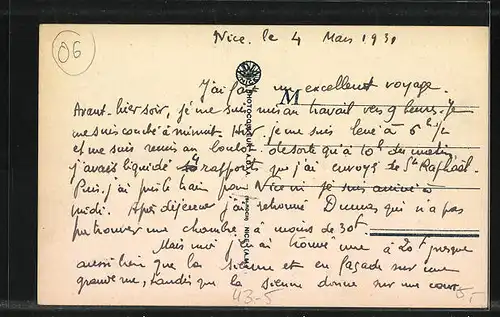 06
Nice. le 4 Mars 1931
J'ai fait un excellent voyage.
Avant-hier soir, je me suis mis au travail vers 9 heures. Je
me suis couché à minuit. Hier, je me suis levé à 6h 1/2
et me suis remis au boulot. de sorte qu'à 10h du matin
j'avais liquidé 4 rapports que j'ai envoyé de St Raphaël.
Puis, j'ai pris le train pour Nice où je suis arrivé à
midi. Après déjeuner j'ai retrouvé Dumas qui n'a pas
pu trouver une chambre à moins de 30f.
Mais moi j'en ai trouvé une à 20f presque
aussi bien que la sienne et en façade sur une
grande rue, tandis que la sienne donne sur une cour.
M
43-5
5.-